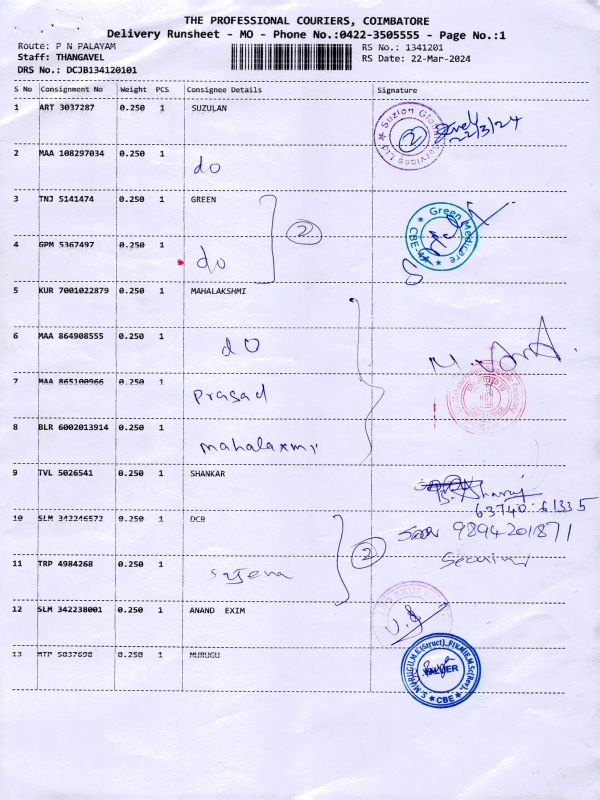 THE PROFESSIONAL COURIERS, COIMBATORE
Delivery Runsheet - MO - Phone No.:0422-3505555 - Page No.:1
Route: P N PALAYAM RS No.: 1341201
Staff: THANGAVEL RS Date: 22-Mar-2024
DRS No.: DCJB134120101
S No Consignment No Weight PCS Consignee Details Signature
1 ART 3037287 0.250 1 SUZULAN
Suzlon Global Services Ltd
2
22/3/24
2 MAA 108297034 0.250 1 do
3 TNJ 5141474 0.250 1 GREEN
2
Green Medicare
CBE
4 GPM 5367497 0.250 1 do
5 KUR 7001022879 0.250 1 MAHALAKSHMI
6 MAA 864908555 0.250 1 do
7 MAA 865100966 0.250 1 Prasad
8 BLR 6002013914 0.250 1 mahalaxmi
9 TVL 5026541 0.250 1 SHANKAR
63740 61335
10 SLM 342246572 0.250 1 DCB
9894201871
2
11 TRP 4984268 0.250 1
12 SLM 342238001 0.250 1 ANAND EXIM
13 MTP 5037698 0.250 1 MURUGU
S. MURUGU, M.E(Struct)
CBE